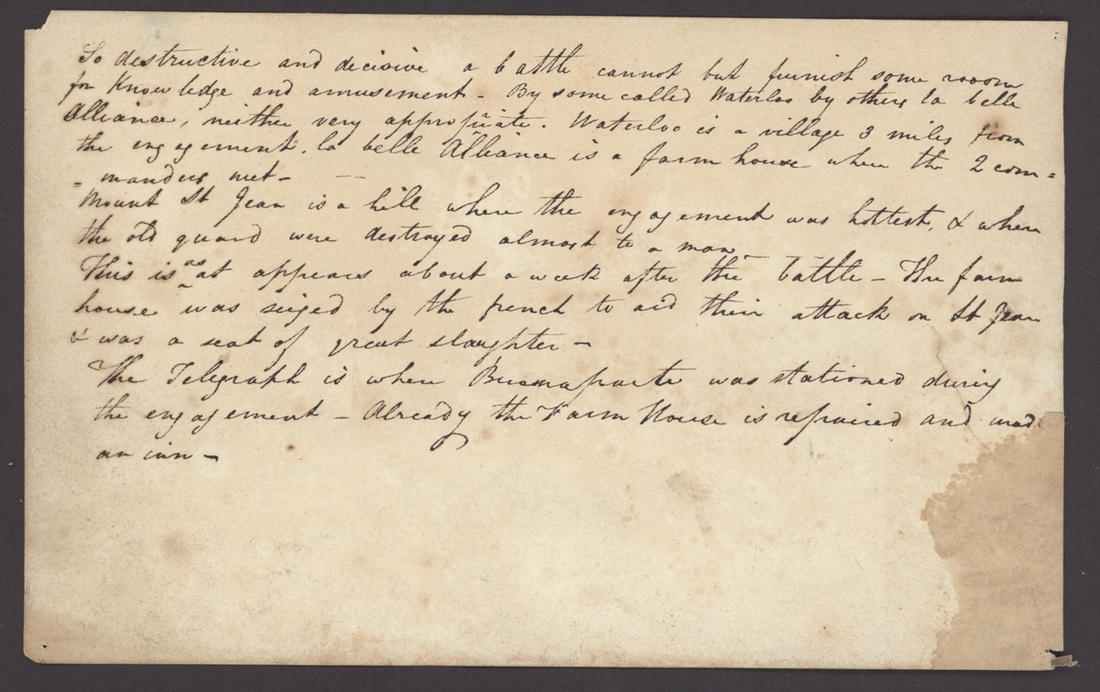 So destructive and decisive a battle cannot but furnish some room
for Knowledge and amusement - By some called Waterloo by others la belle
Alliance, neither very appropriate. Waterloo is a village 3 miles from
the engagement. la belle Alliance is a farm house where the 2 com=
=manders met -
Mount St Jean is a hill where the engagement was hottest, & where
the old guard were destroyed almost to a man -
This is as it appears about a week after the battle - The farm
house was seized by the french to aid their attack on St Jean
& was a seat of great slaughter -
The Telegraph is where Buonaparte was stationed during
the engagement - Already the Farm House is repaired and made
an inn -